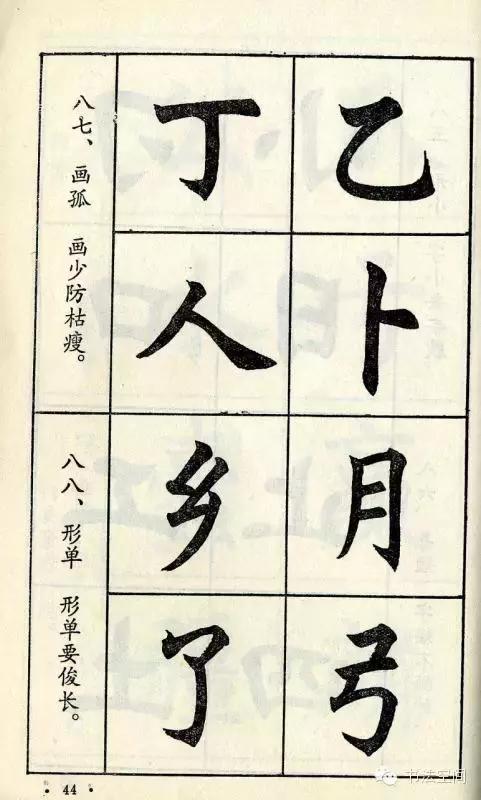 八七、画孤 画少防枯瘦。
丁乙
人卜
八八、形单 形单要俊长。
乡月
了弓
44
书法空间